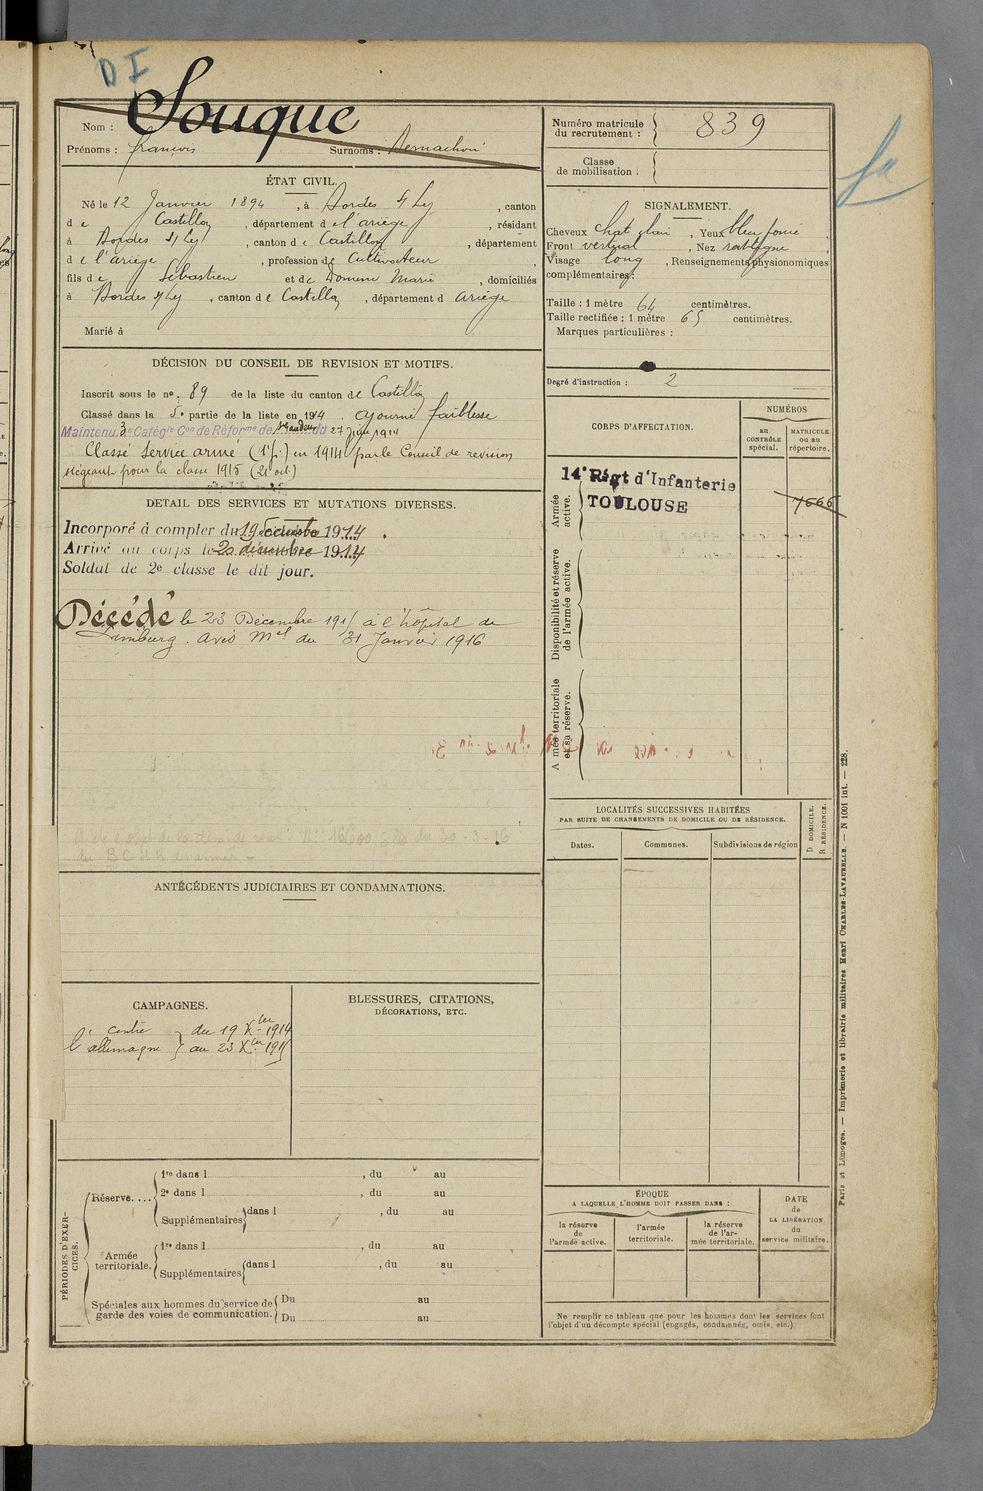 D I
Souque
Nom :
Prénoms : François Surnoms :
Numéro matricule du recrutement : 839
Classe de mobilisation :
ÉTAT CIVIL.
Né le 12 Janvier 1894, à Bordes s/ Ley, canton
d e Castillon, département d e l'ariège, résidant
à Bordes s/ Ley, canton d e Castillon, département
d e l'ariège, profession de Cultivateur,
fils d e Sébastien et de Domenc Marie, domiciliés
à Bordes s/ Ley, canton d e Castillon, département d ariège
Marié à
SIGNALEMENT.
Cheveux chat clair, Yeux bleu foncé
Front vertical, Nez rectligne
Visage long, Renseignements physionomiques
complémentaires:
Taille : 1 mètre 64 centimètres.
Taille rectifiée : 1 mètre 65 centimètres.
Marques particulières :
Degré d'instruction : 2
DÉCISION DU CONSEIL DE REVISION ET MOTIFS.
Inscrit sous le no. 89 de la liste du canton de Castillon
Classé dans la 5e partie de la liste en 1914. ajourné faiblesse
Maintenu 3e Catégie Con de Réforme de du 27 Juin 1914
Classé Service armé (1e p.) en 1914 par le Conseil de revision
siégeant pour la classe 1915 (21 oct.)
DETAIL DES SERVICES ET MUTATIONS DIVERSES.
Incorporé à compter du 19 Décembre 1914.
Arrivé au corps le 20 décembre 1914
Soldat de 2e classe le dit jour.
Décédé le 23 Décembre 1915 à l'hôpital de
Limburg. avis Mel du 31 Janvier 1916
CORPS D'AFFECTATION.
NUMÉROS
au CONTRÔLE spécial.
MATRICULE ou au répertoire.
Armée active.
14e Régt d'Infanterie
TOULOUSE
7566
Disponibilité et réserve de l'armée active.
A mée territoriale et sa réserve.
LOCALITÉS SUCCESSIVES HABITÉES
PAR SUITE DE CHANGEMENTS DE DOMICILE OU DE RÉSIDENCE.
Dates.
Communes.
Subdivisions de région
D. DOMICILE.
R. RÉSIDENCE.
ANTÉCÉDENTS JUDICIAIRES ET CONDAMNATIONS.
CAMPAGNES.
du 19 Xbre 1914
allemagne au 23 Xbre 1915
BLESSURES, CITATIONS,
DÉCORATIONS, ETC.
PÉRIODES D'EXERCICES.
Réserve....
1re dans l , du au
2e dans l , du au
Supplémentaires dans l , du au
Armée territoriale.
1re dans l , du au
Supplémentaires dans l , du au
Spéciales aux hommes du service de garde des voies de communication.
Du au
Du au
ÉPOQUE
A LAQUELLE L'HOMME DOIT PASSER DANS :
la réserve de l'armée active.
l'armée territoriale.
la réserve de l'armée territoriale.
DATE de LA LIBÉRATION du service militaire.
Ne remplir ce tableau que pour les hommes dont les services font
l'objet d'un décompte spécial (engagés, condamnés, omis, etc.)
Paris et Limoges. — Imprimerie et librairie militaires Henri CHARLES-LAVAUZELLE. — N 1001 int. — 228.